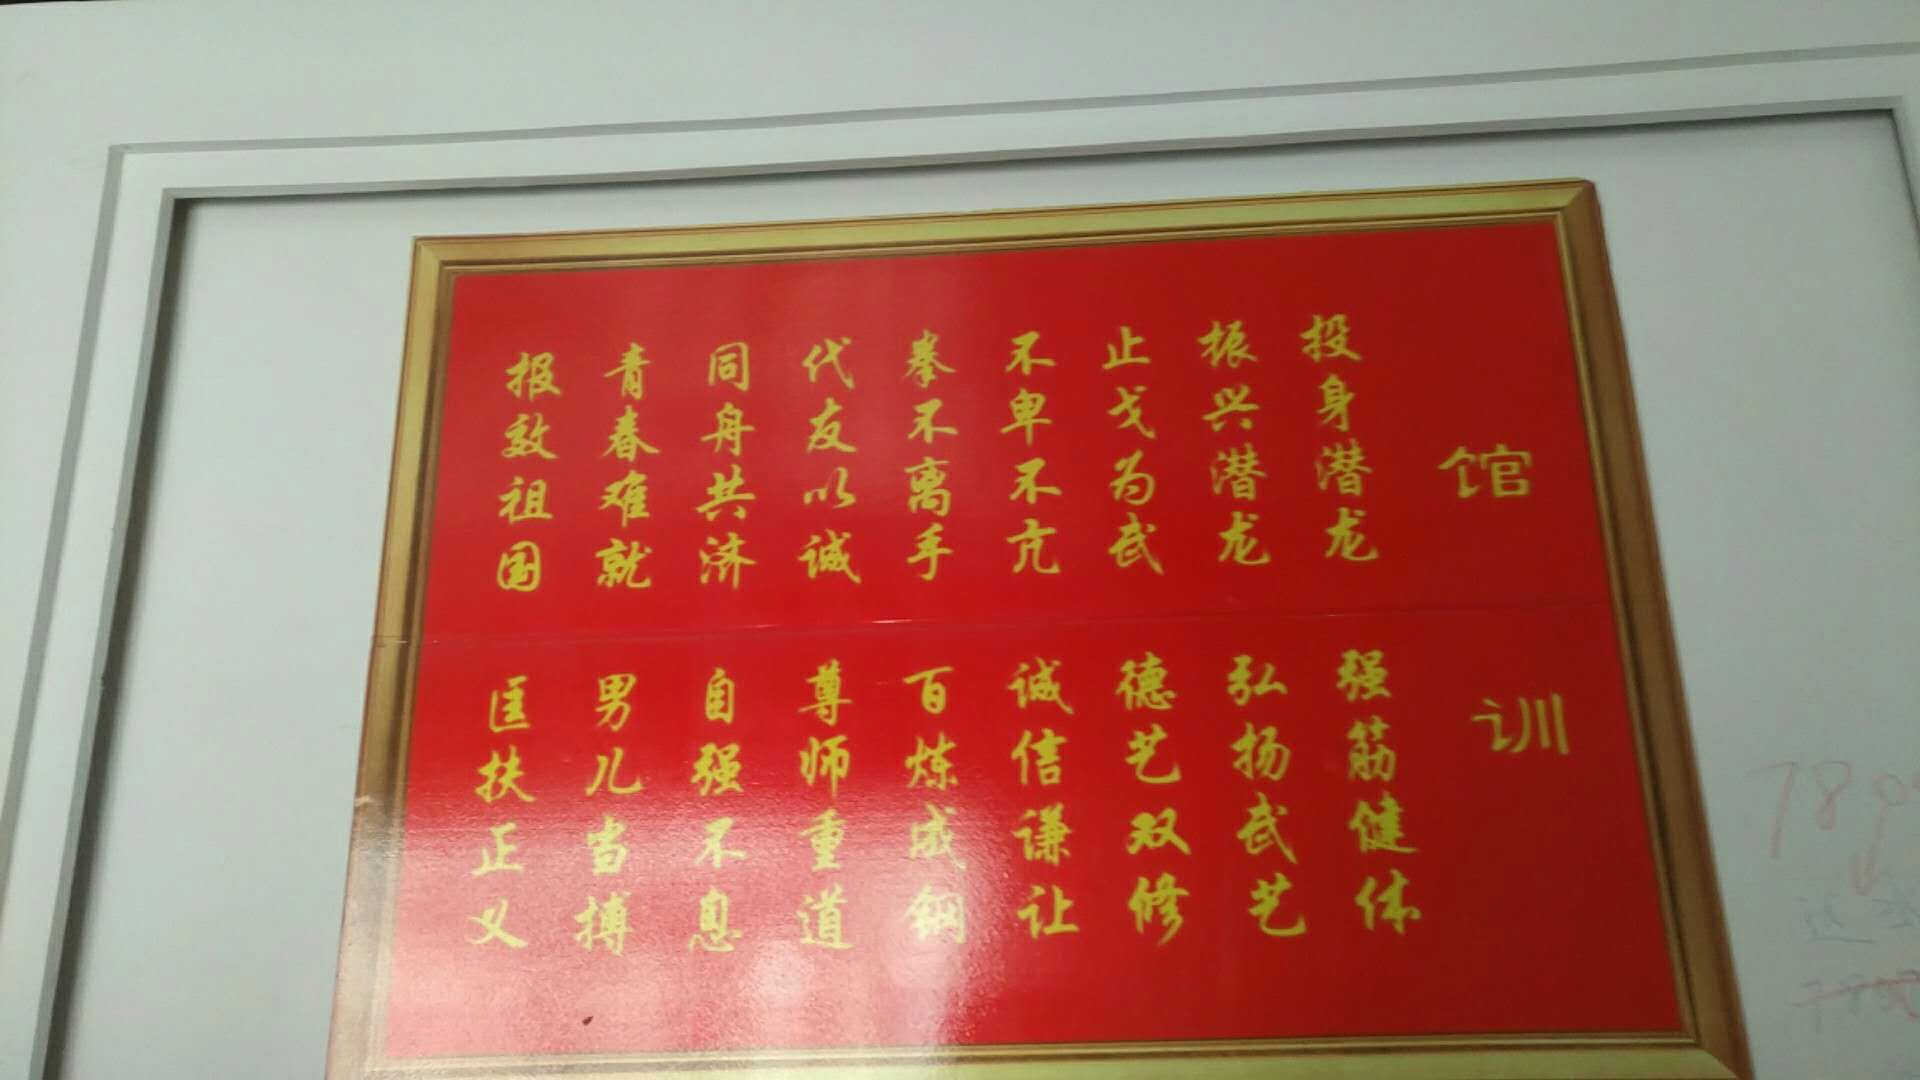 馆训
投身潜龙 强筋健体
振兴潜龙 弘扬武艺
止戈为武 德艺双修
不卑不亢 诚信谦让
拳不离手 百炼成钢
代友以诚 尊师重道
同舟共济 自强不息
青春难就 男儿当搏
报效祖国 匡扶正义